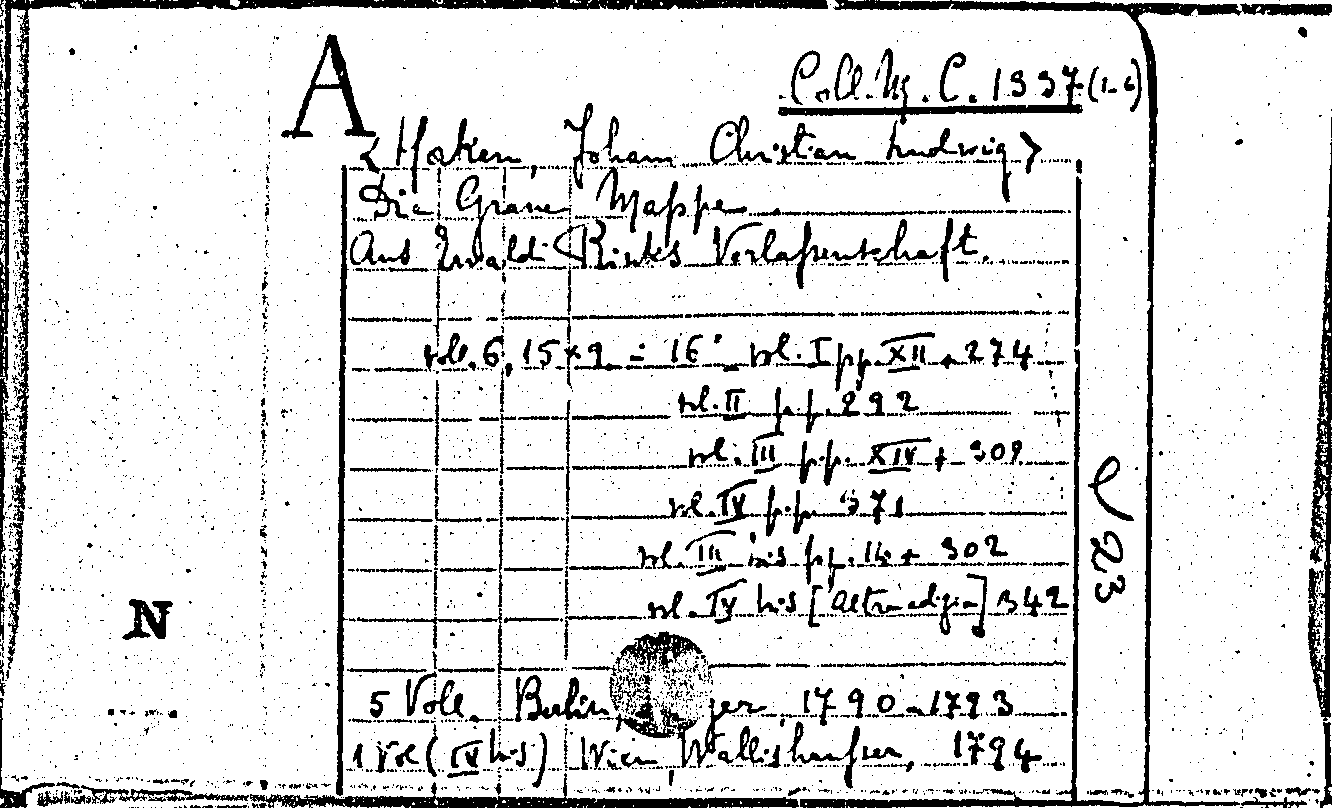 A
Coll. M. C. 1337 (1-6)
< Haken, Johann Christian Ludwig >
Die Graue Mappe
Aus Ewald Rinks Verlaßenschaft.
voll. 6, 15 x 9 = 16° vol. I pp. XII + 274
vol. II pp. 292
vol. III pp. XIV + 302
vol. IV pp. 371
vol. III bis pp. 14 + 302
vol. IV bis [altra ediz.] 342
e 23
N
5 Voll. Berlin, 1790-1793
1 Vol (IV bis) Wien, Wallishausser, 1794